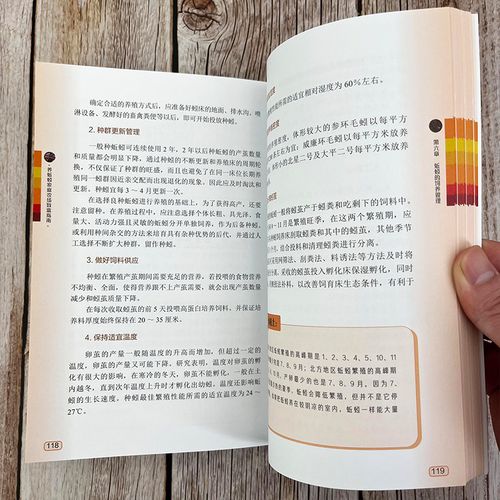 确定合适的养殖方式后，应准备好蚓床的地面、排水沟、喷
淋设备、发酵好的畜禽粪便等以后，即可开始投放种蚓。
2. 种群更新管理
一般种蚯蚓可连续使用2年，2年以后种蚯蚓的产茧数量
和质量都会明显下降，通过种蚓的不断更新和养殖床的周期轮
换，不仅保证了种群的旺盛，而且也避免了在同一床位长期养殖
同一蚓群因近亲交配而出现退化的现象，因此应及时淘汰和
更新。种蚓宜每3～4月更新一次。
在选择良种蚯蚓进行养殖的基础上，为了获得高产，还要
注意留种。在养殖过程中，应注意选择个体长粗、具光泽、食
量大、活动力强且灵敏的蚯蚓分开单独饲养，作为后备种蚓，
或利用种间杂交的方法来培育具有杂种优势的后代，并通过人
工选择不断扩大种群，留作种蚓。
3. 做好饲料供应
种蚓在繁殖产茧期间需要充足的营养，若投喂的食物营养
不均衡、全面，使得营养跟不上产茧需要，就会出现产茧数量
减少和茧质量下降。
在每次收取蚓茧的前5天投喂高蛋白培养饲料，并保证培
养料厚度始终保持在20～35厘米。
4. 保持适宜温度
卵茧的产量一般随温度的升高而增加，但超过一定的
温度，卵茧的产量又可能下降。研究表明，温度对卵茧的孵
化有很大的影响，在寒冷的冬天，卵茧不能孵化，一般在土
内越冬，直到次年温度上升时才孵化出幼蚓，温度还影响蚯
蚓的生长速度。种蚓最佳繁殖性能所需的适宜温度为24～
27℃。
118
养蚯蚓家庭农场致富指南
性能所需的适宜相对湿度为60%左右。
养殖密度，体形较大的参环毛蚓以每平方
条左右为宜；威廉环毛蚓以每平方放养
形小的北星二号及大平二号每平方米放养
蚯蚓一般将蚓茧产于蚓粪和吃剩下的饲料中。
月～11月是繁殖旺季，在这两个繁殖期，应
种蚓饲养床刮取蚓粪和其中的蚓茧，其他季节
个月，结合投料和清理蚓粪进行分离。
采用网筛法、刮粪法、料诱法等方法及时将
分离，采收的蚓茧投入孵化床保湿孵化，同时
以改善饲育床生态条件，有利于
蚯蚓繁殖的高峰期是1、2、3、4、5、10、11
7、8、9月；北方地区蚯蚓繁殖的高峰期
产卵最少的也是7、8、9月。因为7、
的夏季，蚯蚓会降低繁殖，但并不是它停
养在较阴凉的室内，蚯蚓一样能大量
119
第六章
蚯蚓的饲养管理